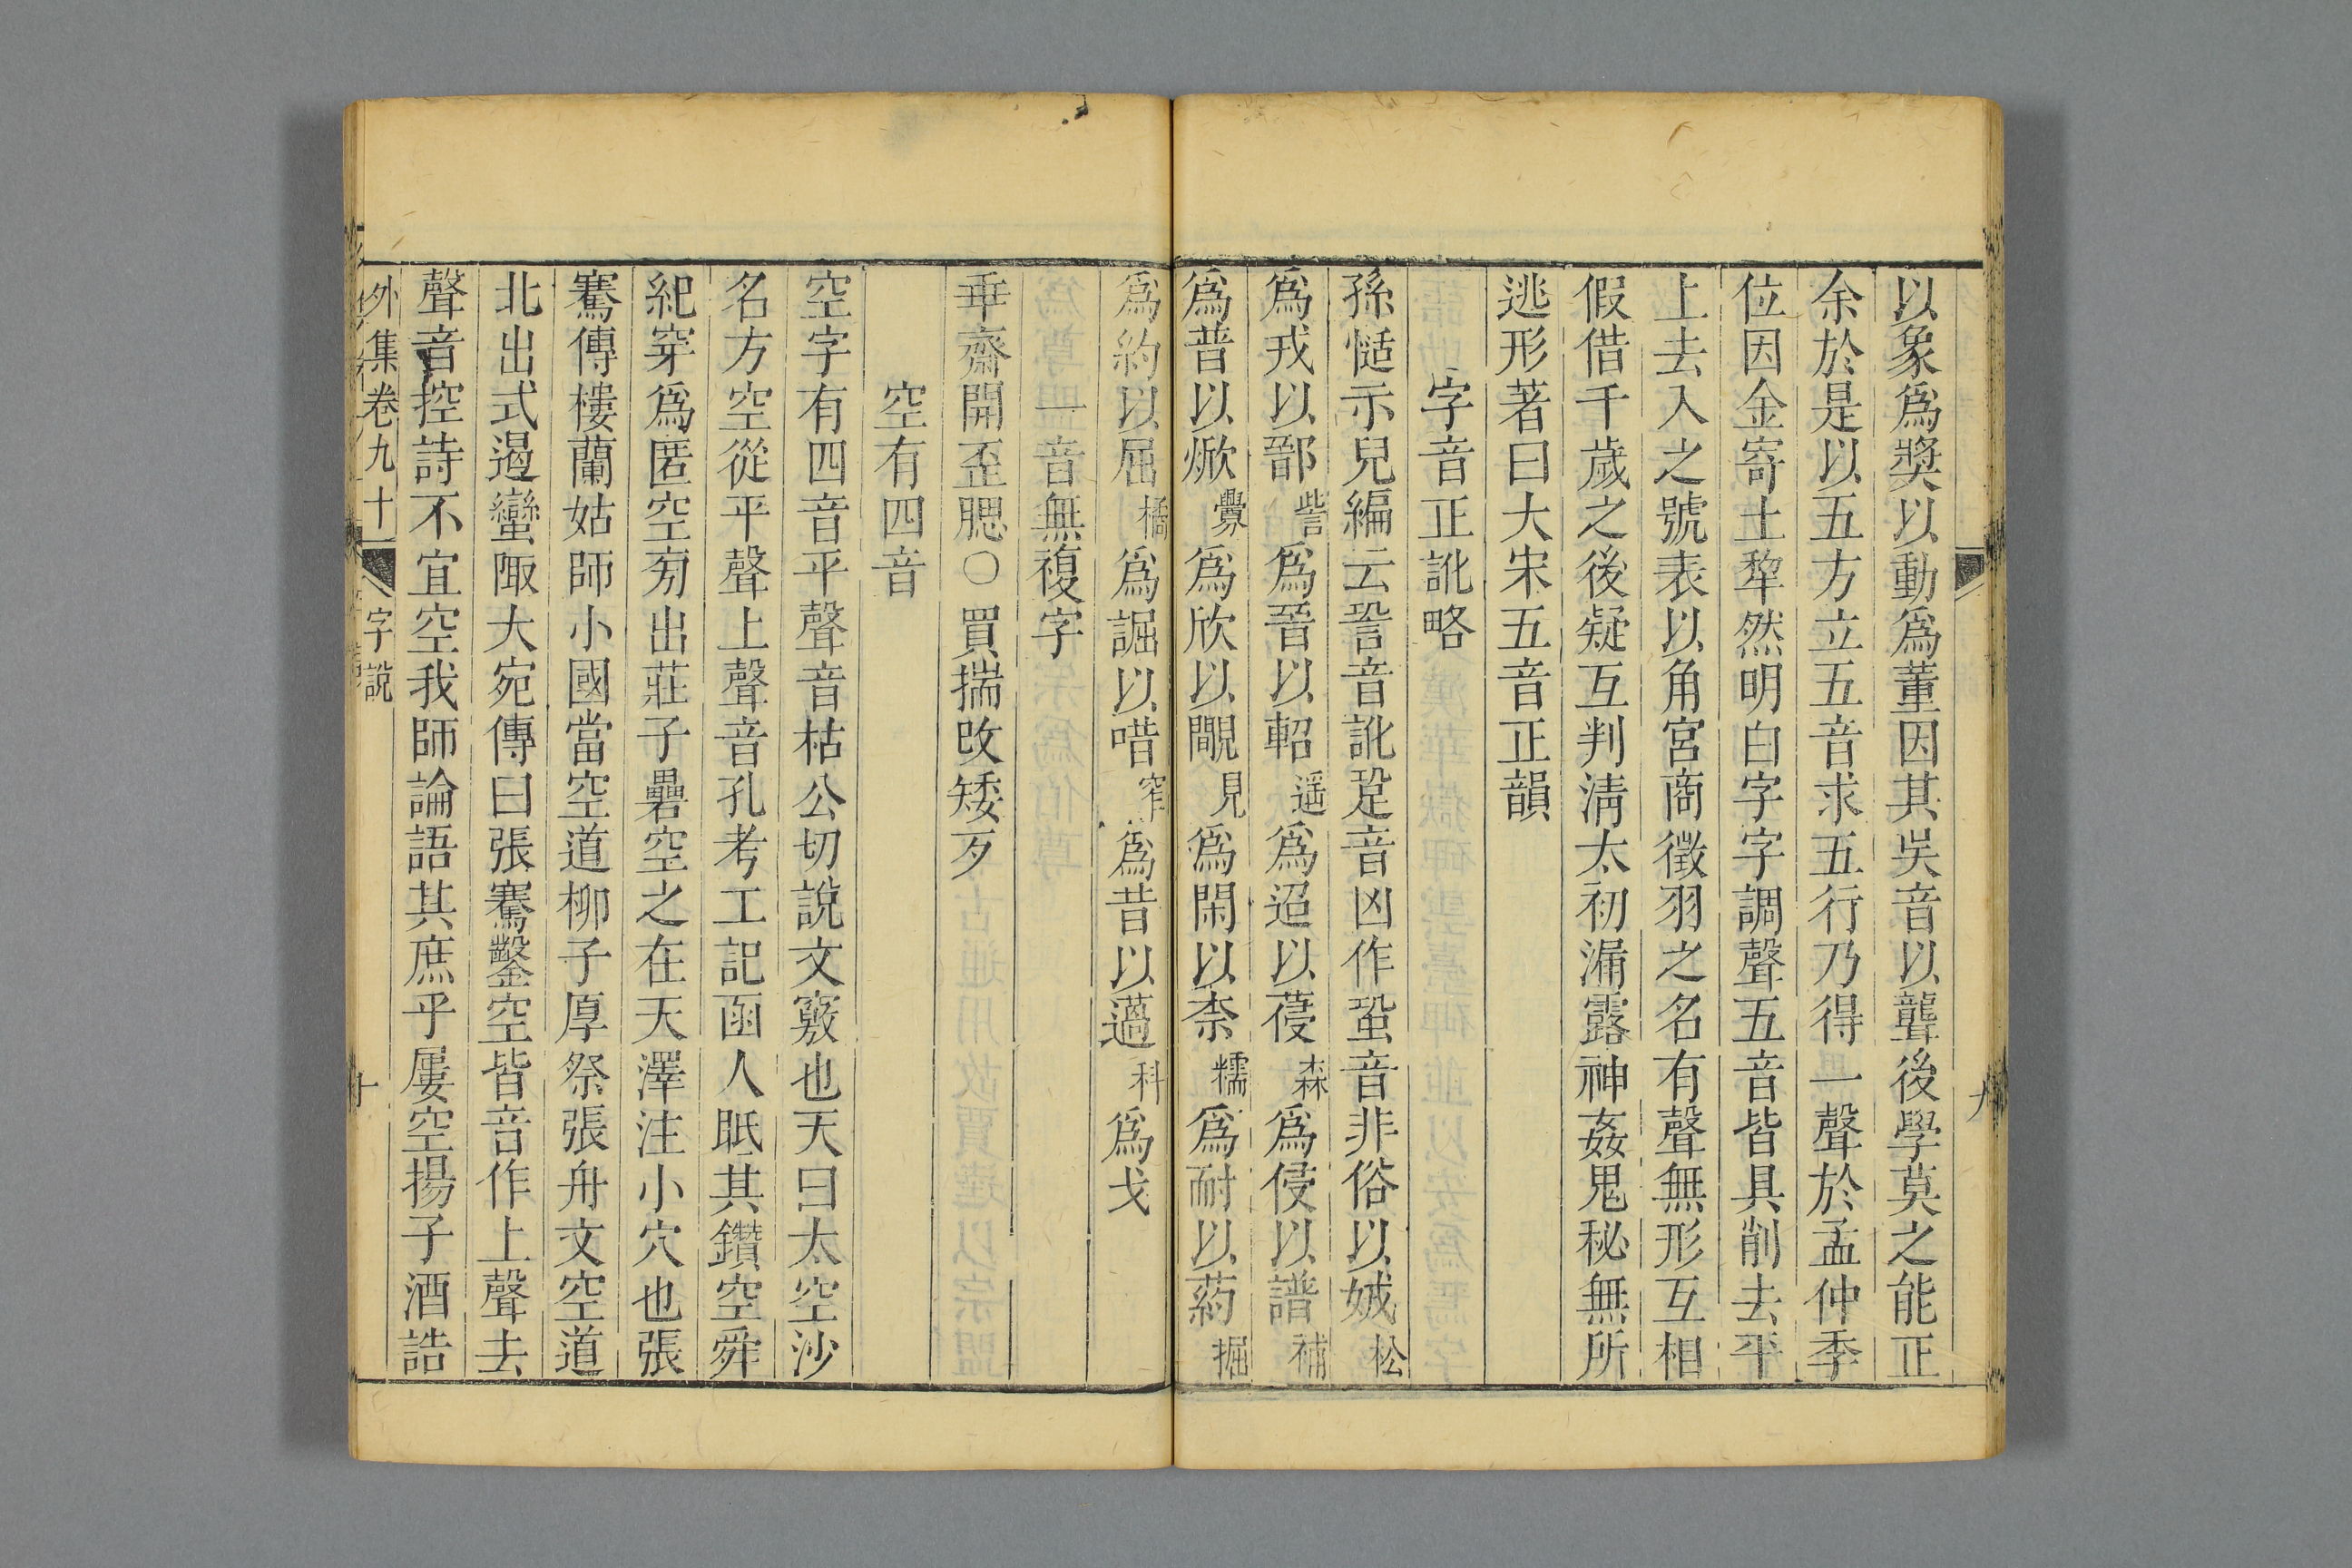 以象爲獎以動爲董因其吳音以聾後學莫之能正
余於是以五方立五音求五行乃得一聲於孟仲季
位因金寄土犂然明白字字調聲五音皆具削去平
上去入之號表以角宮商徵羽之名有聲無形互相
假借千歲之後疑互判淸太初漏露神姦鬼秘無所
逃形著曰大宋五音正韻
字音正訛略
孫愐示兒編云詧音訛跫音凶作蛩音非俗以娀松
爲戎以鄑訾爲晉以軺遥爲迢以葠森爲侵以譜補
爲普以焮釁爲欣以瞷見爲閑以柰糯爲耐以葯掘
爲約以屈橘爲誳以唶窄爲昔以薖科爲戈
一音無複字
乖齋開歪腮〇買揣改矮歹
空有四音
空字有四音平聲音枯公切說文竅也天曰太空沙
名方空從平聲上聲音孔考工記函人眂其鑽空舜
紀穿爲匿空旁出莊子礨空之在天澤注小穴也張
騫傳樓蘭姑師小國當空道柳子厚祭張舟文空道
北出式遏蠻陬大宛傳曰張騫鑿空皆音作上聲去
聲音控詩不宜空我師論語其庶乎屢空揚子酒誥
外集卷九十一 字說 十